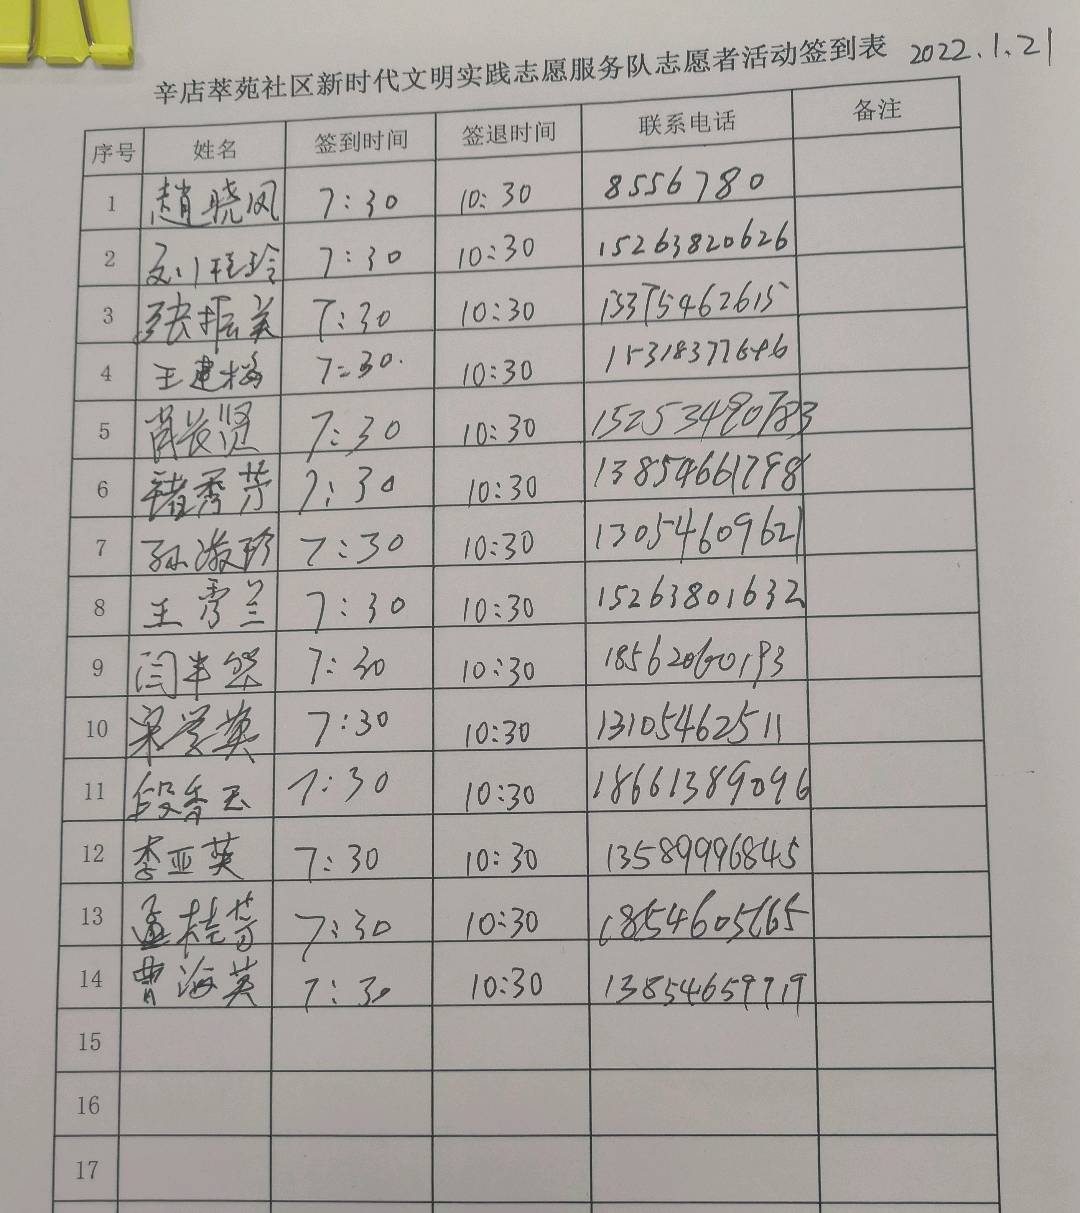 辛店萃苑社区新时代文明实践志愿服务队志愿者活动签到表 2022.1.21
序号 姓名 签到时间 签退时间 联系电话 备注
1 趙晓风 7:30 10:30 8556780
2 刘桂玲 7:30 10:30 15263820626
3 张振美 7:30 10:30 15375462615
4 王建梅 7:30 10:30 15318377646
5 肖长贤 7:30 10:30 15253490783
6 褚秀芳 7:30 10:30 13854661798
7 孙淑珍 7:30 10:30 13054609621
8 王秀兰 7:30 10:30 15263801632
9 闫 7:30 10:30
10 宋学英 7:30 10:30 13105462511
11 段秀玉 7:30 10:30 18661389096
12 李亚英 7:30 10:30 13589996845
13 孟桂芳 7:30 10:30
14 曹海英 7:30 10:30 13854659719
15
16
17